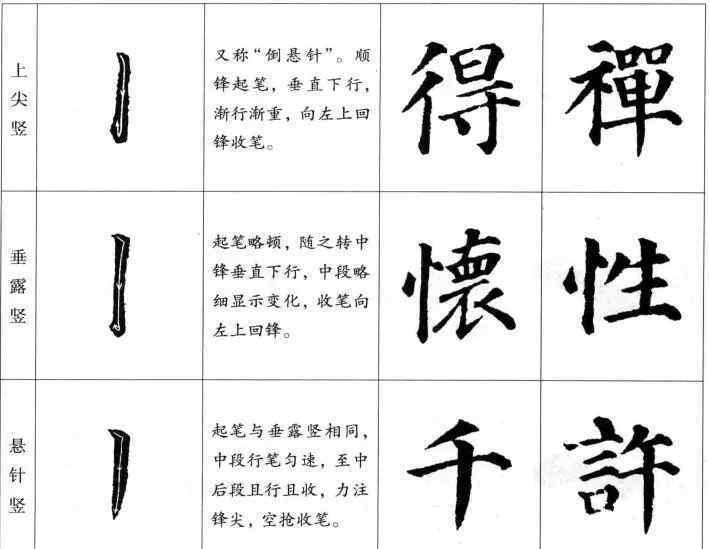 上尖竖
又称“倒悬针”。顺
锋起笔，垂直下行，
渐行渐重，向左上回
锋收笔。
得
禪
垂露竖
起笔略顿，随之转中
锋垂直下行，中段略
细显示变化，收笔向
左上回锋。
懷
性
悬针竖
起笔与垂露竖相同，
中段行笔匀速，至中
后段且行且收，力注
锋尖，空抢收笔。
千
許